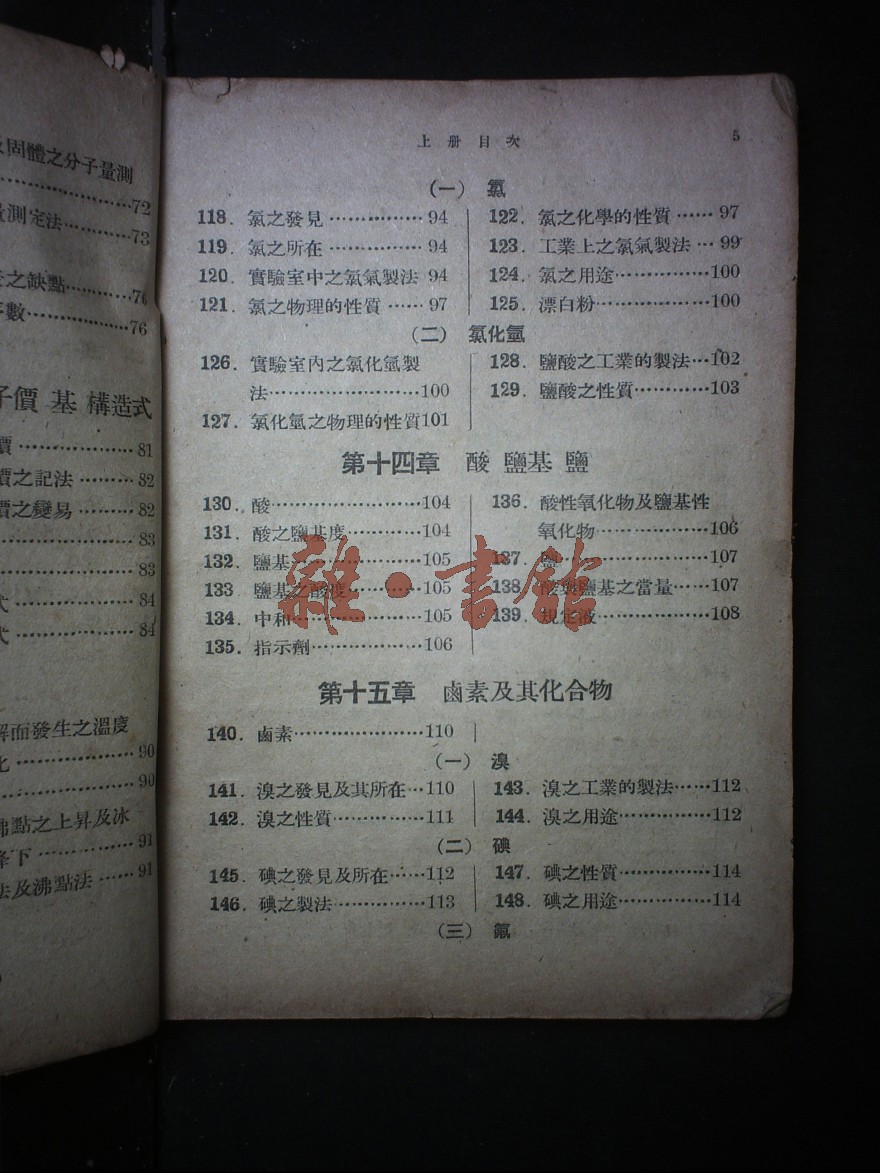 及固體之分子量測
72
量測定法 73
之缺點 76
子數 76
子價 基 構造式
價 81
價之記法 82
價之變易 82
83
83
式 84
式 84
解而發生之溫度
化 90
90
沸點之上昇及冰
降下 91
法及沸點法 91
上册目次 5
(一) 氯
118. 氯之發見 94
119. 氯之所在 94
120. 實驗室中之氯氣製法 94
121. 氯之物理的性質 97
122. 氯之化學的性質 97
123. 工業上之氯氣製法 99
124. 氯之用途 100
125. 漂白粉 100
(二) 氯化氫
126. 實驗室內之氯化氫製
法 100
127. 氯化氫之物理的性質101
128. 鹽酸之工業的製法 102
129. 鹽酸之性質 103
第十四章 酸 鹽基 鹽
130. 酸 104
131. 酸之鹽基度 104
132. 鹽基 105
133 鹽基之酸度 105
134. 中和 105
135. 指示劑 106
136. 酸性氧化物及鹽基性
氧化物 106
137. 鹽 107
138. 酸與鹽基之當量 107
139. 規定液 108
雜·書館
第十五章 鹵素及其化合物
140. 鹵素 110
(一) 溴
141. 溴之發見及其所在 110
142. 溴之性質 111
143. 溴之工業的製法 112
144. 溴之用途 112
(二) 碘
145. 碘之發見及所在 112
146. 碘之製法 113
147. 碘之性質 114
148. 碘之用途 114
(三) 氟